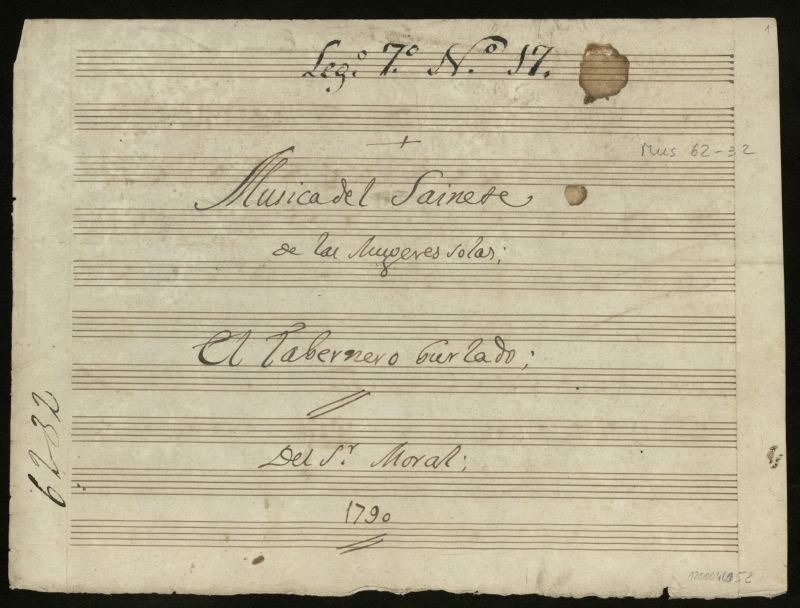 1
Leg.º 7.º N.º 17.
Mus 62-32
Musica del Sainete
de las Mugeres solas;
El Tabernero burlado;
Del S.r Moral;
1790
62-32